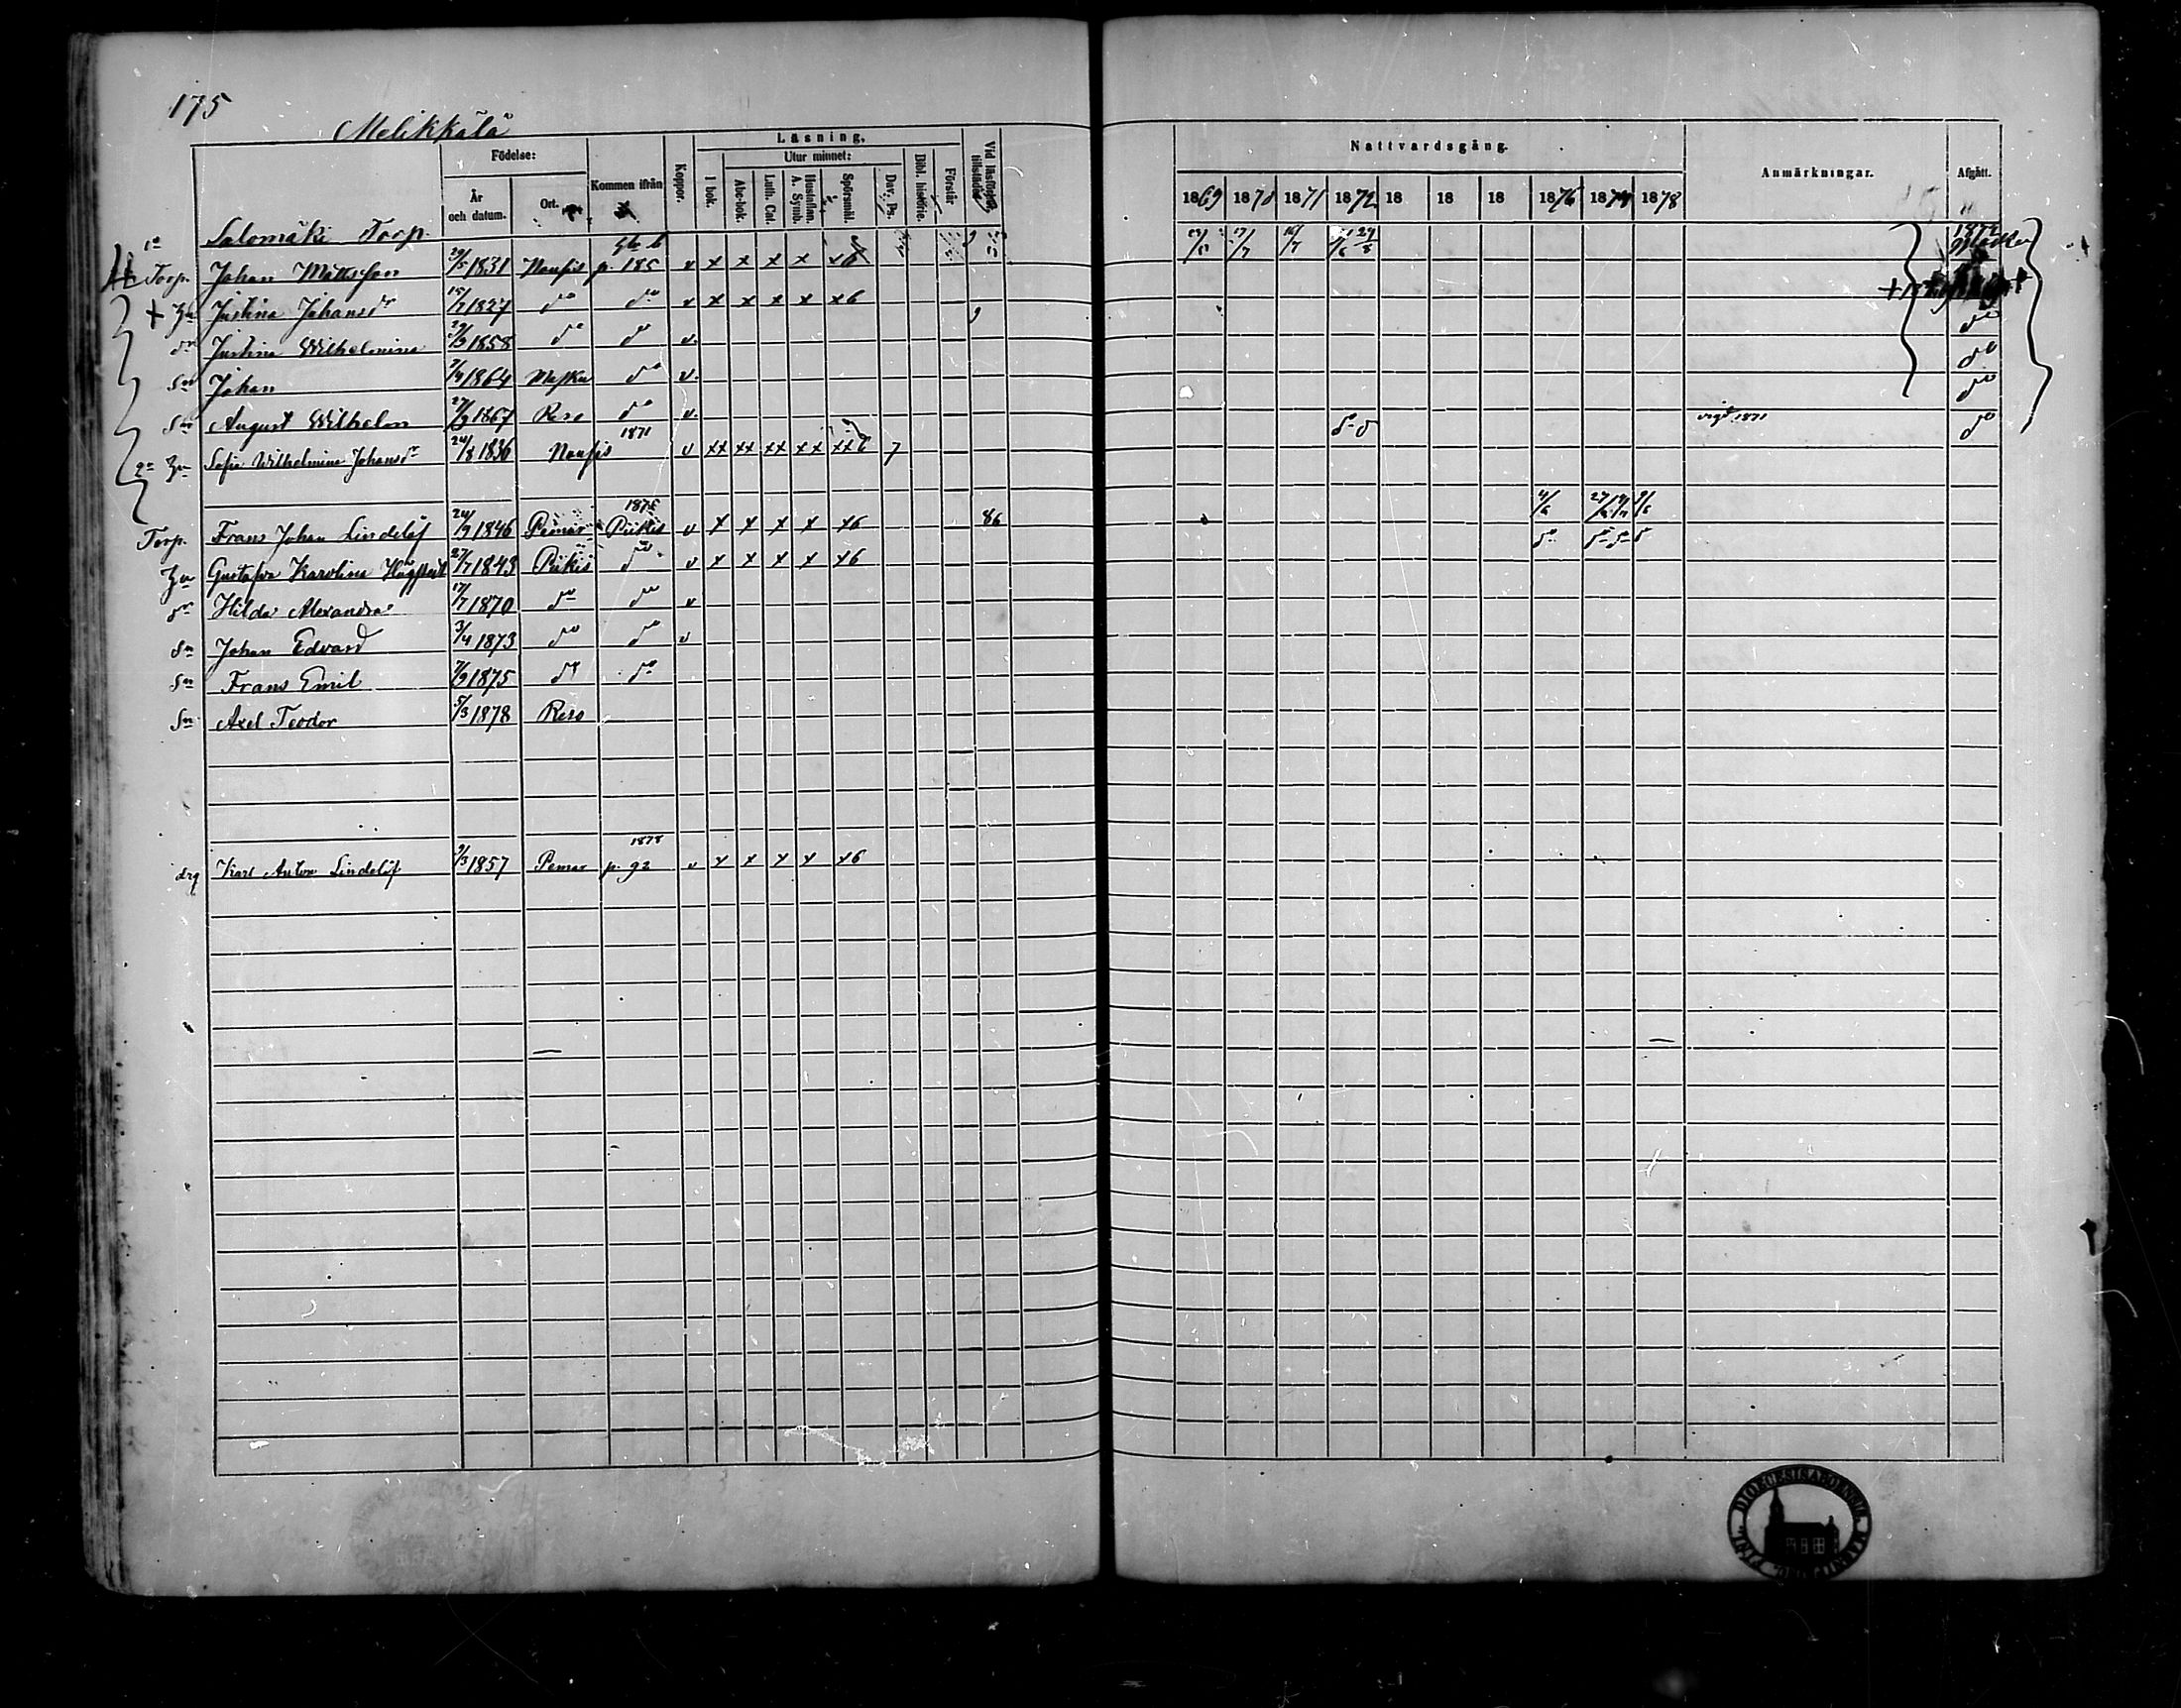 175
Melikkälä
Födelse:
Läsning.
År och datum.
Ort.
Kommen ifrån
Koppor.
I bok.
Utur minnet:
Abc-bok.
Luth. Cat.
Hustaflan. A. Symb.
Spörsmål.
Dav. Ps.
Bibl. historie.
Förstår
Vid läsförhör tillstädes
Nattvardsgång.
1869 1870 1871 1872 18 18 18 1876 1877 1878
Anmärkningar.
Afgått.
Salomäki Torp.
Torp. Johan Mattsson 29/5 1831 Nousis p. 185 v x x x x x6 1872
Hu Justina Johansdr 15/7 1827 do do v x x x x x6
dr Justina Wilhelmina 1858 do do v do
Sn Johan 7/4 1864 Masku do v do
Sn August Wilhelm 27/9 1867 Reso do v do
2a Hu Sofia Wilhelmina Johansdr 24/8 1836 Nousis 1871 v xx xx xx xx xx6 7 do vigd 1871 do
Torp. Frans Johan Lindelöf 24/9 1846 Pemar 1875 Piikis v x x x x x6 86
Hu Gustafva Karolina 27/7 1843 Piikis do v x x x x x6
dr Hilda Alexandra 17/7 1870 do do v
Sn Johan Edvard 3/4 1873 do do v
Sn Frans Emil 7/9 1875 do do
Sn Axel Teodor 5/3 1878 Reso
drg Karl Anton Lindelöf 9/3 1857 Pemar 1878 p. 92 v x x x x x6